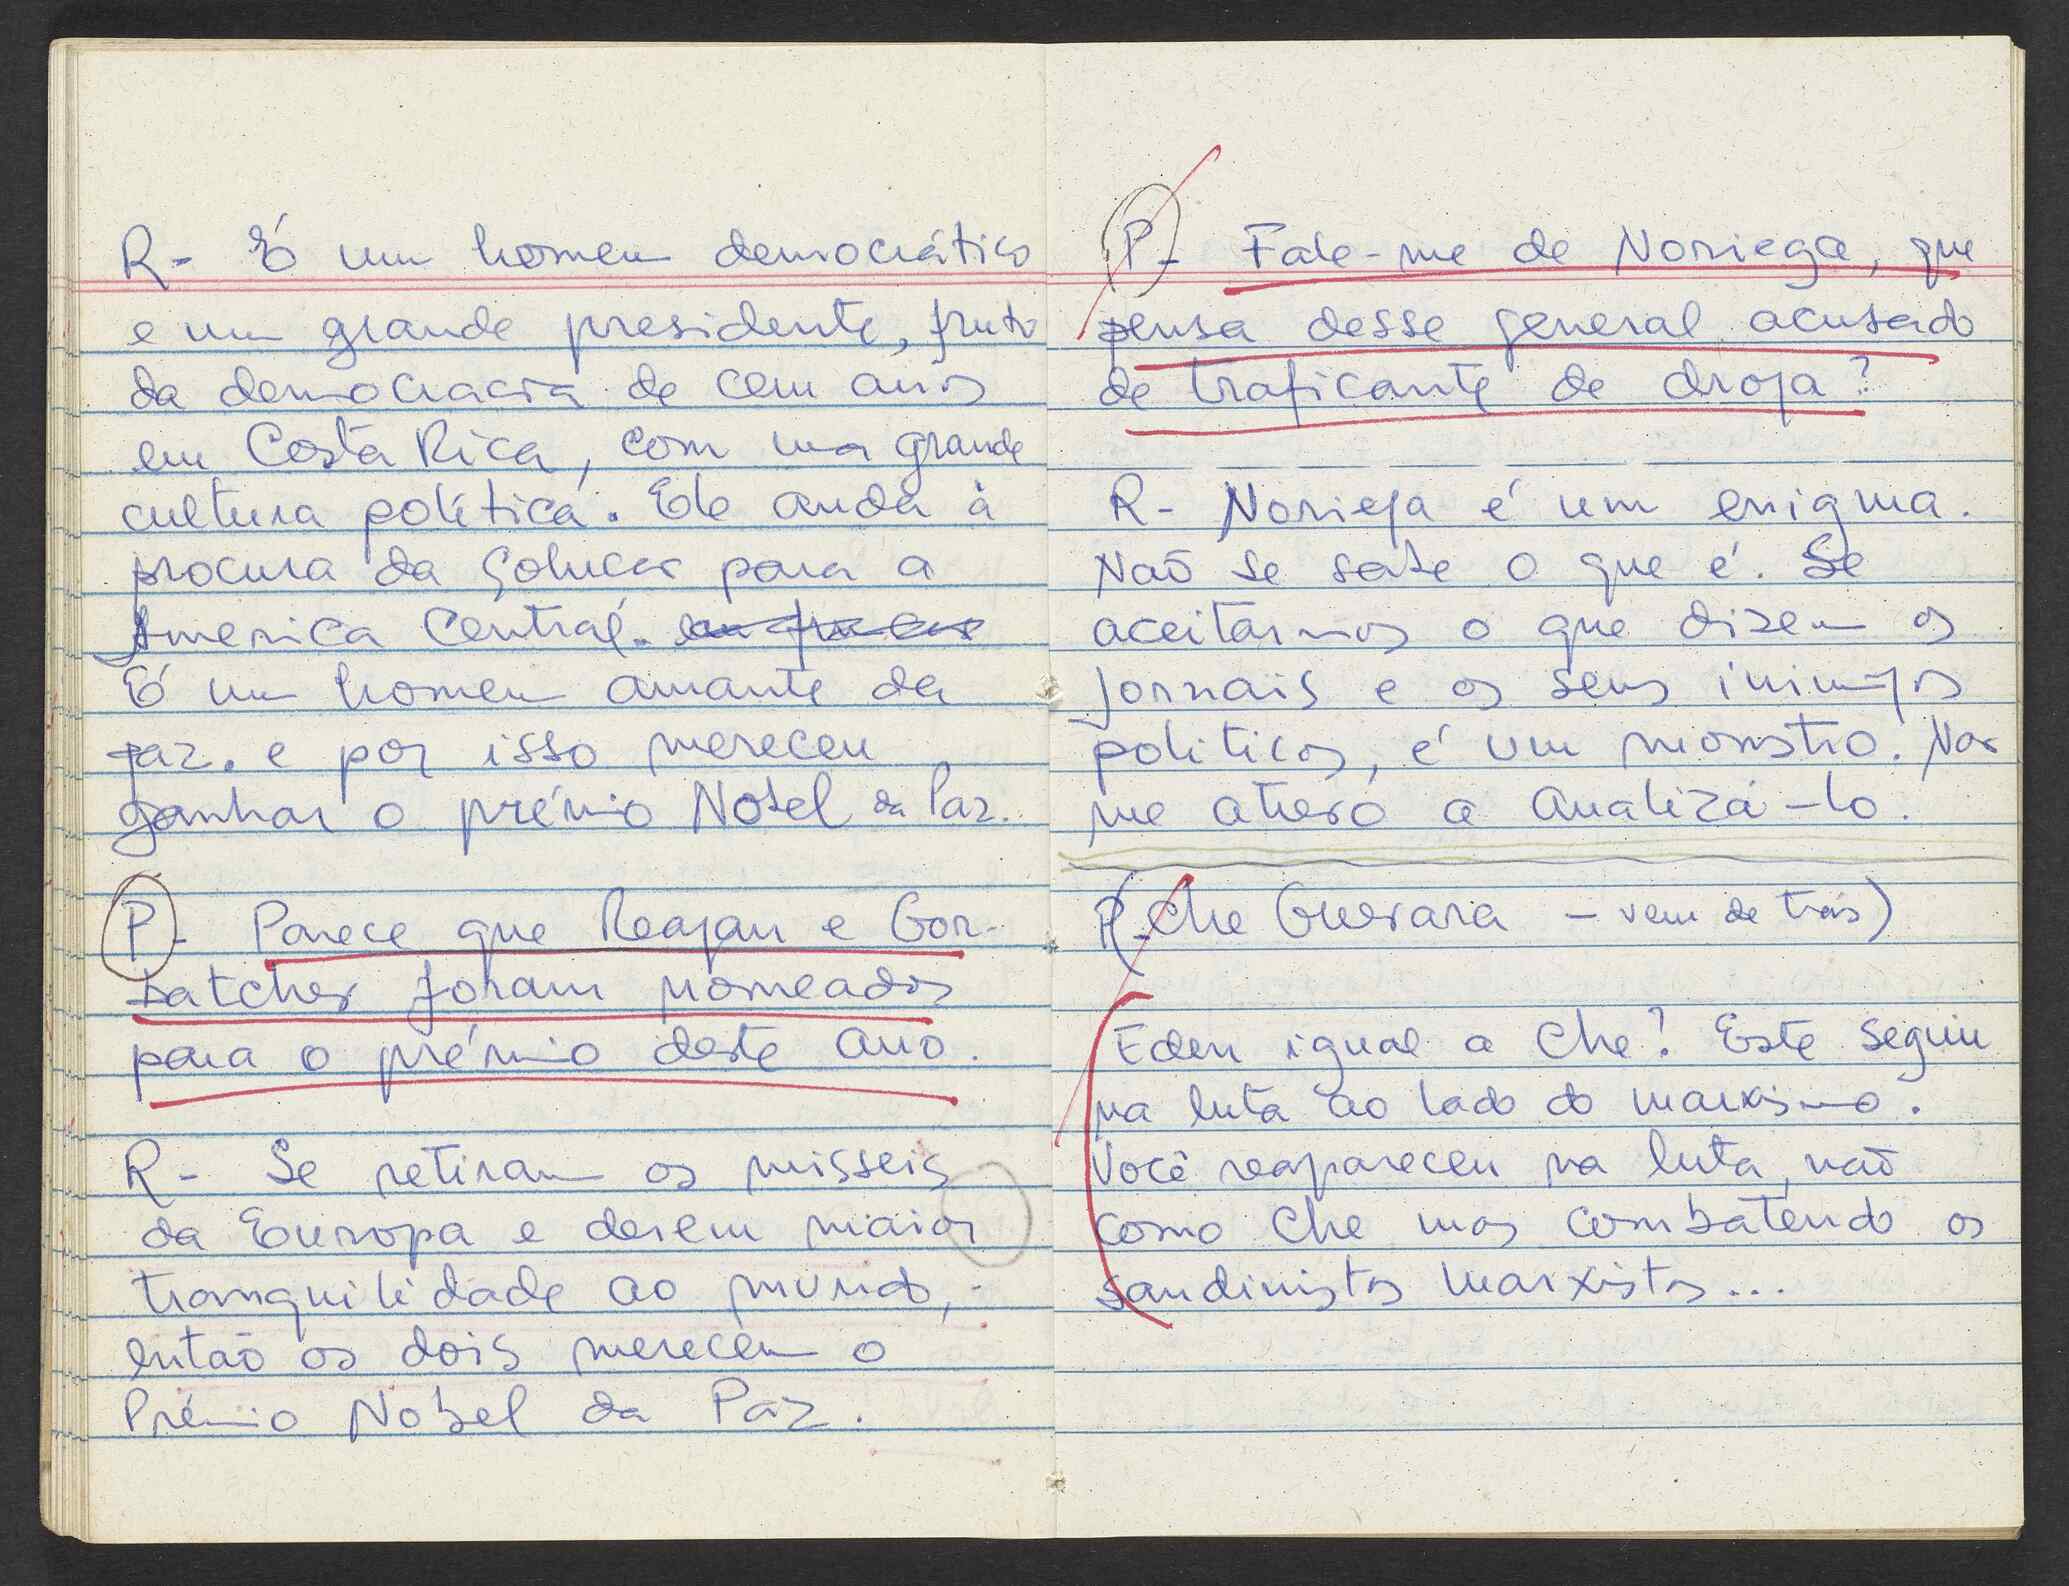 R- É um homem democrático
e um grande presidente, fruto
da democracia de cem anos
em Costa Rica, com uma grande
cultura política. Ele anda à
procura da solucão para a
América Central.
É um homem amante da
paz. e por isso mereceu
ganhar o prémio Nobel da Paz.
P- Parece que Reagan e Gor-
batchov foram nomeados
para o prémio deste ano.
R- Se retiram os misseis
da Europa e derem maior
tranquilidade ao mundo,
então os dois merecem o
Prémio Nobel da Paz.
P- Fale-me de Noriega, que
pensa desse general acusado
de traficante de droga?
R- Noriega é um enigma.
Não se sabe o que é. Se
aceitarmos o que dizem os
jornais e os seus inimigos
politicos, é um monstro. Não
me atrevo a analizá-lo.
P-(Che Guevara - vem de trás)
Eden igual a Che? Este seguiu
na luta ao lado do marxismo.
Você reapareceu na luta, não
como Che mas combatendo os
sandinistas marxistas...